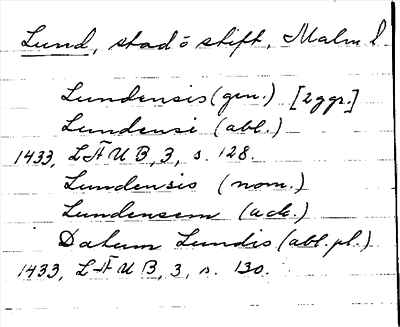 Lund, stad o stift, Malm l
Lundensis (gen.) [2 ggr.]
Lundensi (abl.)
1433, LÄUB, 3, s. 128.
Lundensis (nom.)
Lundensem (ack.)
Datum Lundis (abl. pl.)
1433, LÄUB, 3, s. 130.